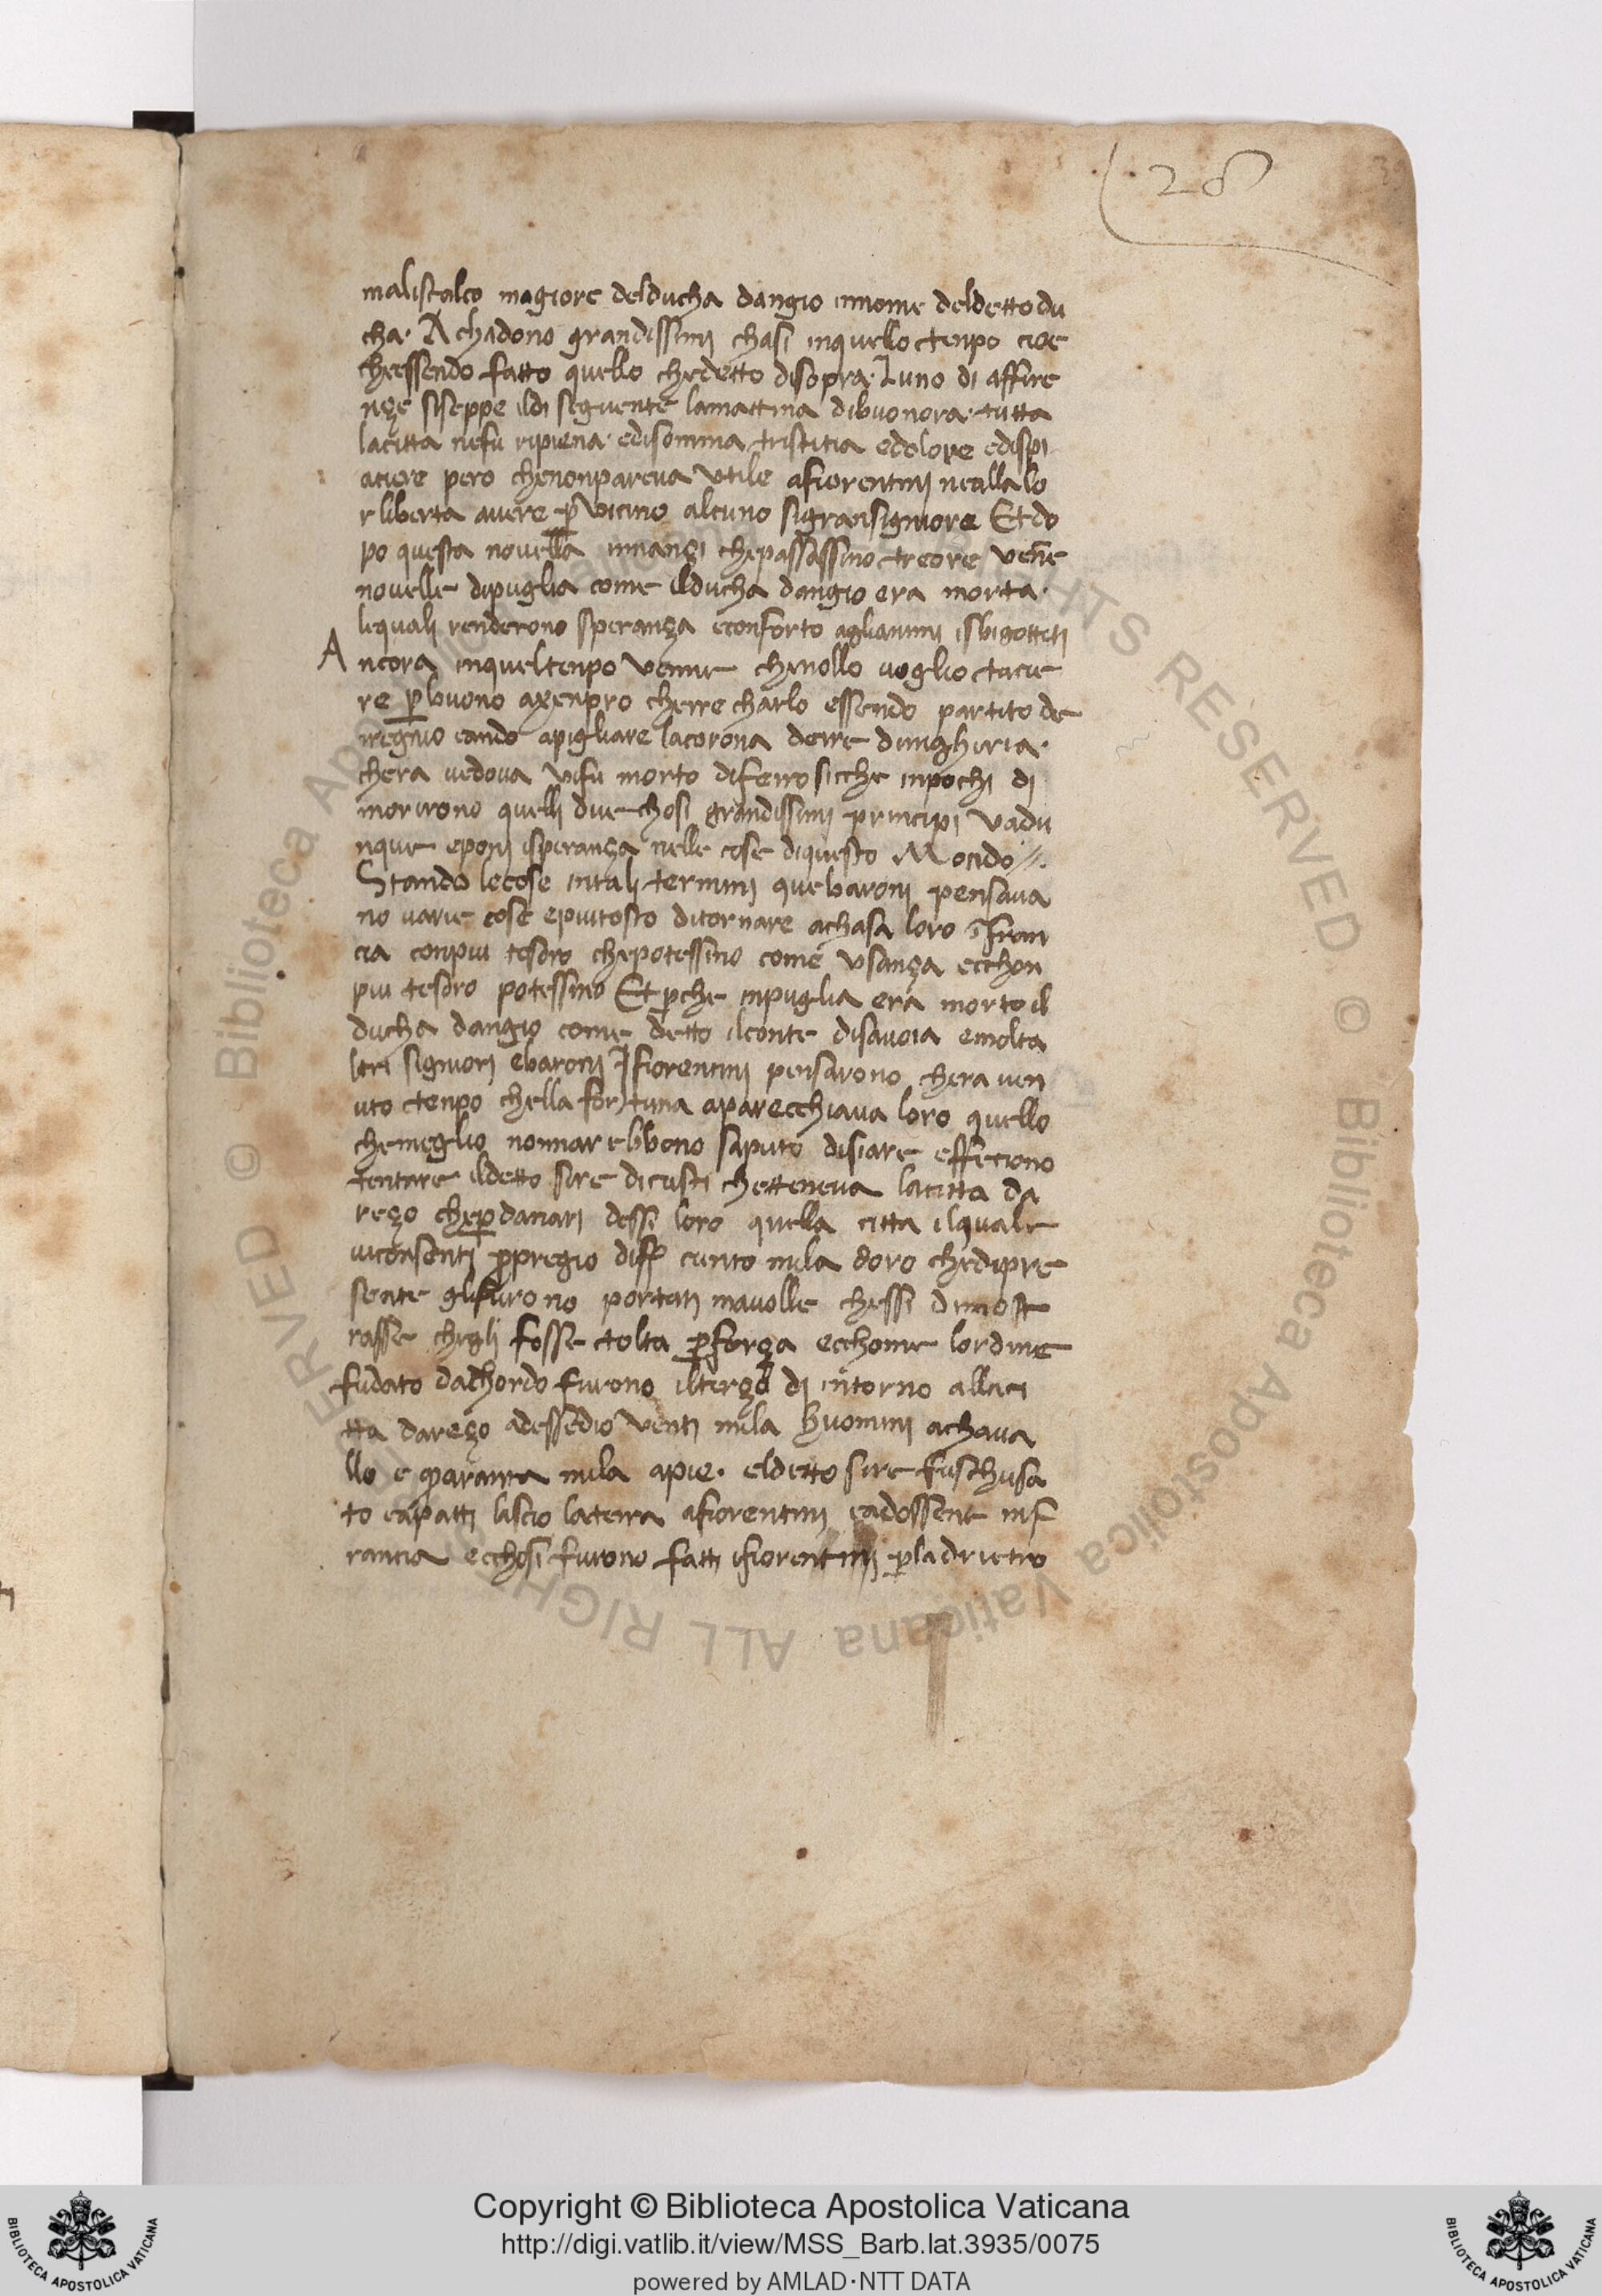 28
maliscalco magiore delducha dangio innome deldetto du
cha. Achadono grandissimi chasi inquello tenpo cioe
cheessendo fatto quello chedetto disopra. Luno di affire
nçe siseppe ildi seguente lamattina dibuonora. tutta
lacitta nefu ripiena. edisomma tristitia edolore edispi
aciere pero chenonpareva utile afiorentini neallalo
r liberta avere p̱ vicino alcuno sigransigniore Et do
po questa novella innançi chepassassino treore ven̄e
novelle dipuglia come ilducha dangio era morta.
lequali renderono sperança econforto aglianimi isbigottiti
Ancora inqueltenpo venne chenollo voglio tacie
re p̱ buono axenpro cherre charlo essendo partito de
rregnio eando apigliare lacorona derre dungheria.
chera vedova vifu morto diferro sicche inpochi di
morirono quelli due chosi grandissimi principi vadu
nque eponi isperança nelle cose diquesto Mondo//.
Stando lecose intali termini quebaroni pensava
no varie cose epiutosto ditornare achasa loro ī fran
cia conpiu tesoro chepotessino come usança ecchon
piu tesoro potessino Et p̱che inpuglia era morto il
ducha dangio come detto ilconte disavoia emolta
ltri signiori ebaroni Ifiorentini pensarono chera ven
uto tenpo chella fortuna aparecchiava loro quello
chemeglio nonnarebbono saputo disiare effeciono
tentare ildetto sire dicusci chetteneva lacitta da
reço chep̱danari dessi loro quella citta ilquale
viconsenti p̱pregio dif̄ ciento mila doro chedipre
sente glifurono portati mavolle chessi dimost
rasse chegli fosse tolta p̱força ecchome lordine
fudato dachordo furono ilterço di intorno allaci
tta dareço adessedio venti mila huomini achava
llo e quaranta mila apie. eldetto sire fuschusa
to eapatti lascio laterra afiorentini eadossene inf
rancia ecchosi furono fatti ifiorentini p̱ladrieto
Copyright © Biblioteca Apostolica Vaticana
http://digi.vatlib.it/view/MSS_Barb.lat.3935/0075
powered by AMLAD·NTT DATA